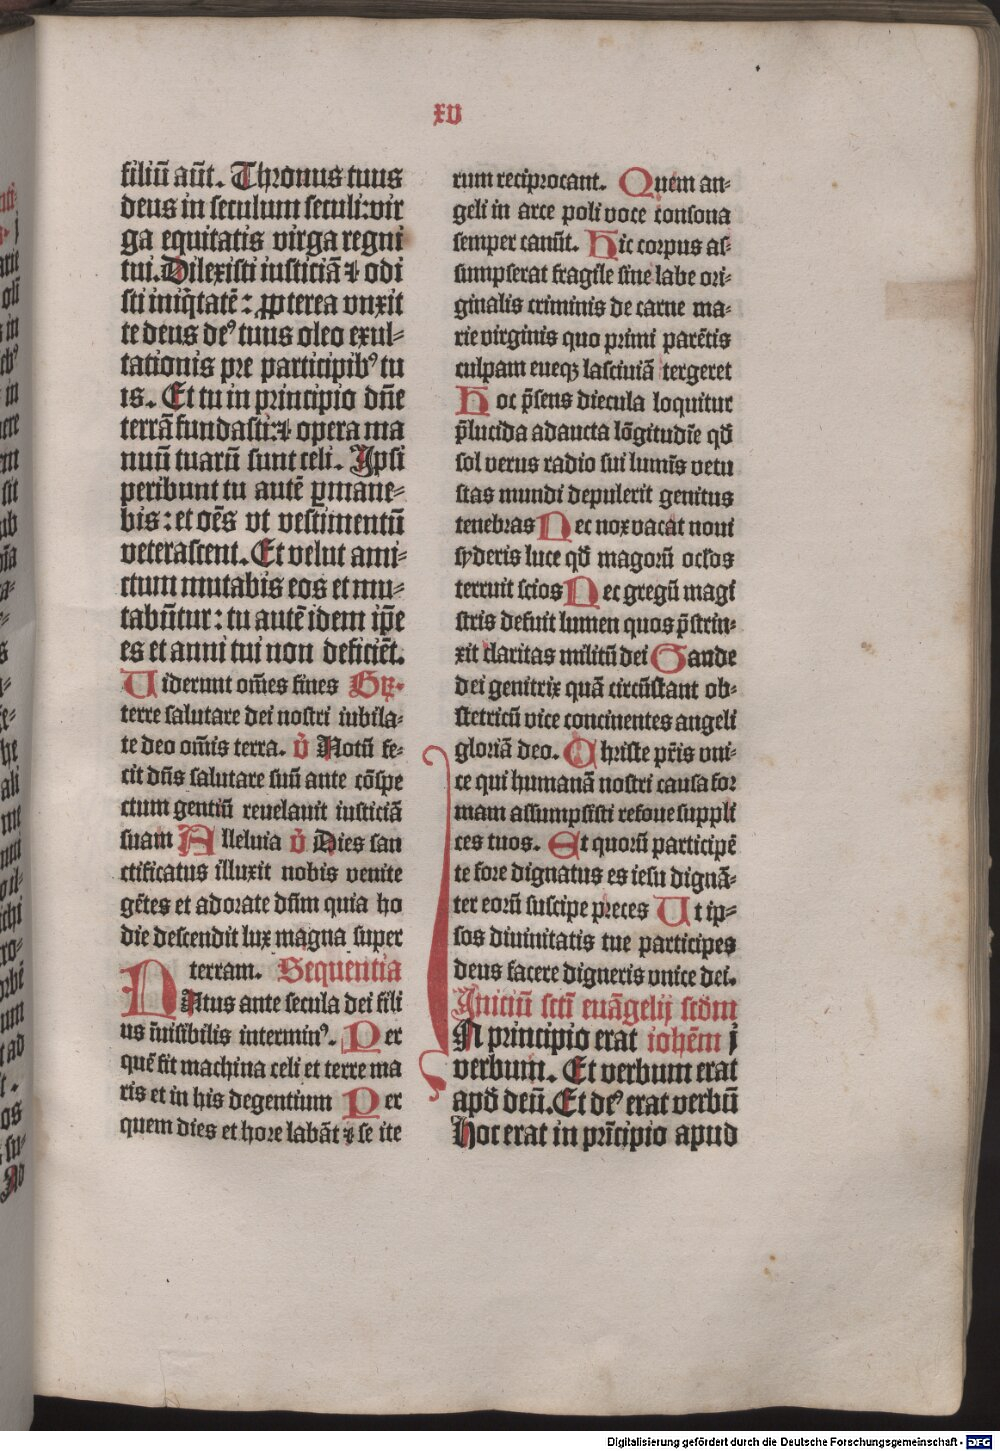 xv
filiū aūt. Thronus tuus
deus in seculum seculi:vir
ga equitatis virga regni
tui. Dilexisti iusticiā ⁊ odi
sti iniq̄tatē: ꝓpterea vnxit
te deus deꝰ tuus oleo exul-
tationis pre participibꝰ tu
is. Et tu in principio dn̄e
terrā fundasti:⁊ opera ma
nuū tuarū sunt celi. Ipsi
peribunt tu autē ꝑmane-
bis: et oēs vt vestimentū
veterascent. Et velut ami-
ctum mutabis eos et mu-
tabūtur: tu autē idem ip̄e
es et anni tui non deficiēt.
Viderunt om̄es fines Gr̄.
terre salutare dei nostri iubila-
te deo om̄is terra. v̄ Notū fe-
cit dn̄s salutare suū ante cōspe
ctum gentiū reuelauit iusticiā
suam Alleluia v̄ Dies san
ctificatus illuxit nobis venite
gētes et adorate dn̄m quia ho
die descendit lux magna super
terram. Sequentia
NAtus ante secula dei fili
us īuisibilis interminꝰ. Per
quē fit machina celi et terre ma
ris et in his degentium Per
quem dies et hore labāt ⁊ se ite
rum reciprocant. Quem an-
geli in arce poli voce consona
semper canūt. Hic corpus as-
sumpserat fragile sine labe ori-
ginalis criminis de carne ma-
rie virginis quo primi parētis
culpam eueqꝫ lasciuiā tergeret
Hoc p̄sens diecula loquitur
p̄lucida adaucta lōgitudīe qd̄
sol verus radio sui lumīs vetu
stas mundi depulerit genitus
tenebras Nec nox vacat noui
syderis luce qd̄ magorū oc̄los
terruit scios Nec gregū magi
stris defuit lumen quos p̄strin-
xit claritas militū dei Gaude
dei genitrix quā circūstant ob-
stetricū vice concinentes angeli
gloriā deo. Christe pr̄is vni-
ce qui humanā nostri causa for
mam assumpsisti refoue suppli
ces tuos. Et quorū participē
te fore dignatus es iesu dignā-
ter eorū suscipe preces Vt ip-
sos diuinitatis tue participes
deus facere digneris vnice dei.
Iniciū sct̄i euāgelij scd̄m
IN principio erat iohēm j
verbum. Et verbum erat
apd̄ deū. Et deꝰ erat verbū
Hoc erat in prīcipio apud
Digitalisierung gefördert durch die Deutsche Forschungsgemeinschaft - DFG